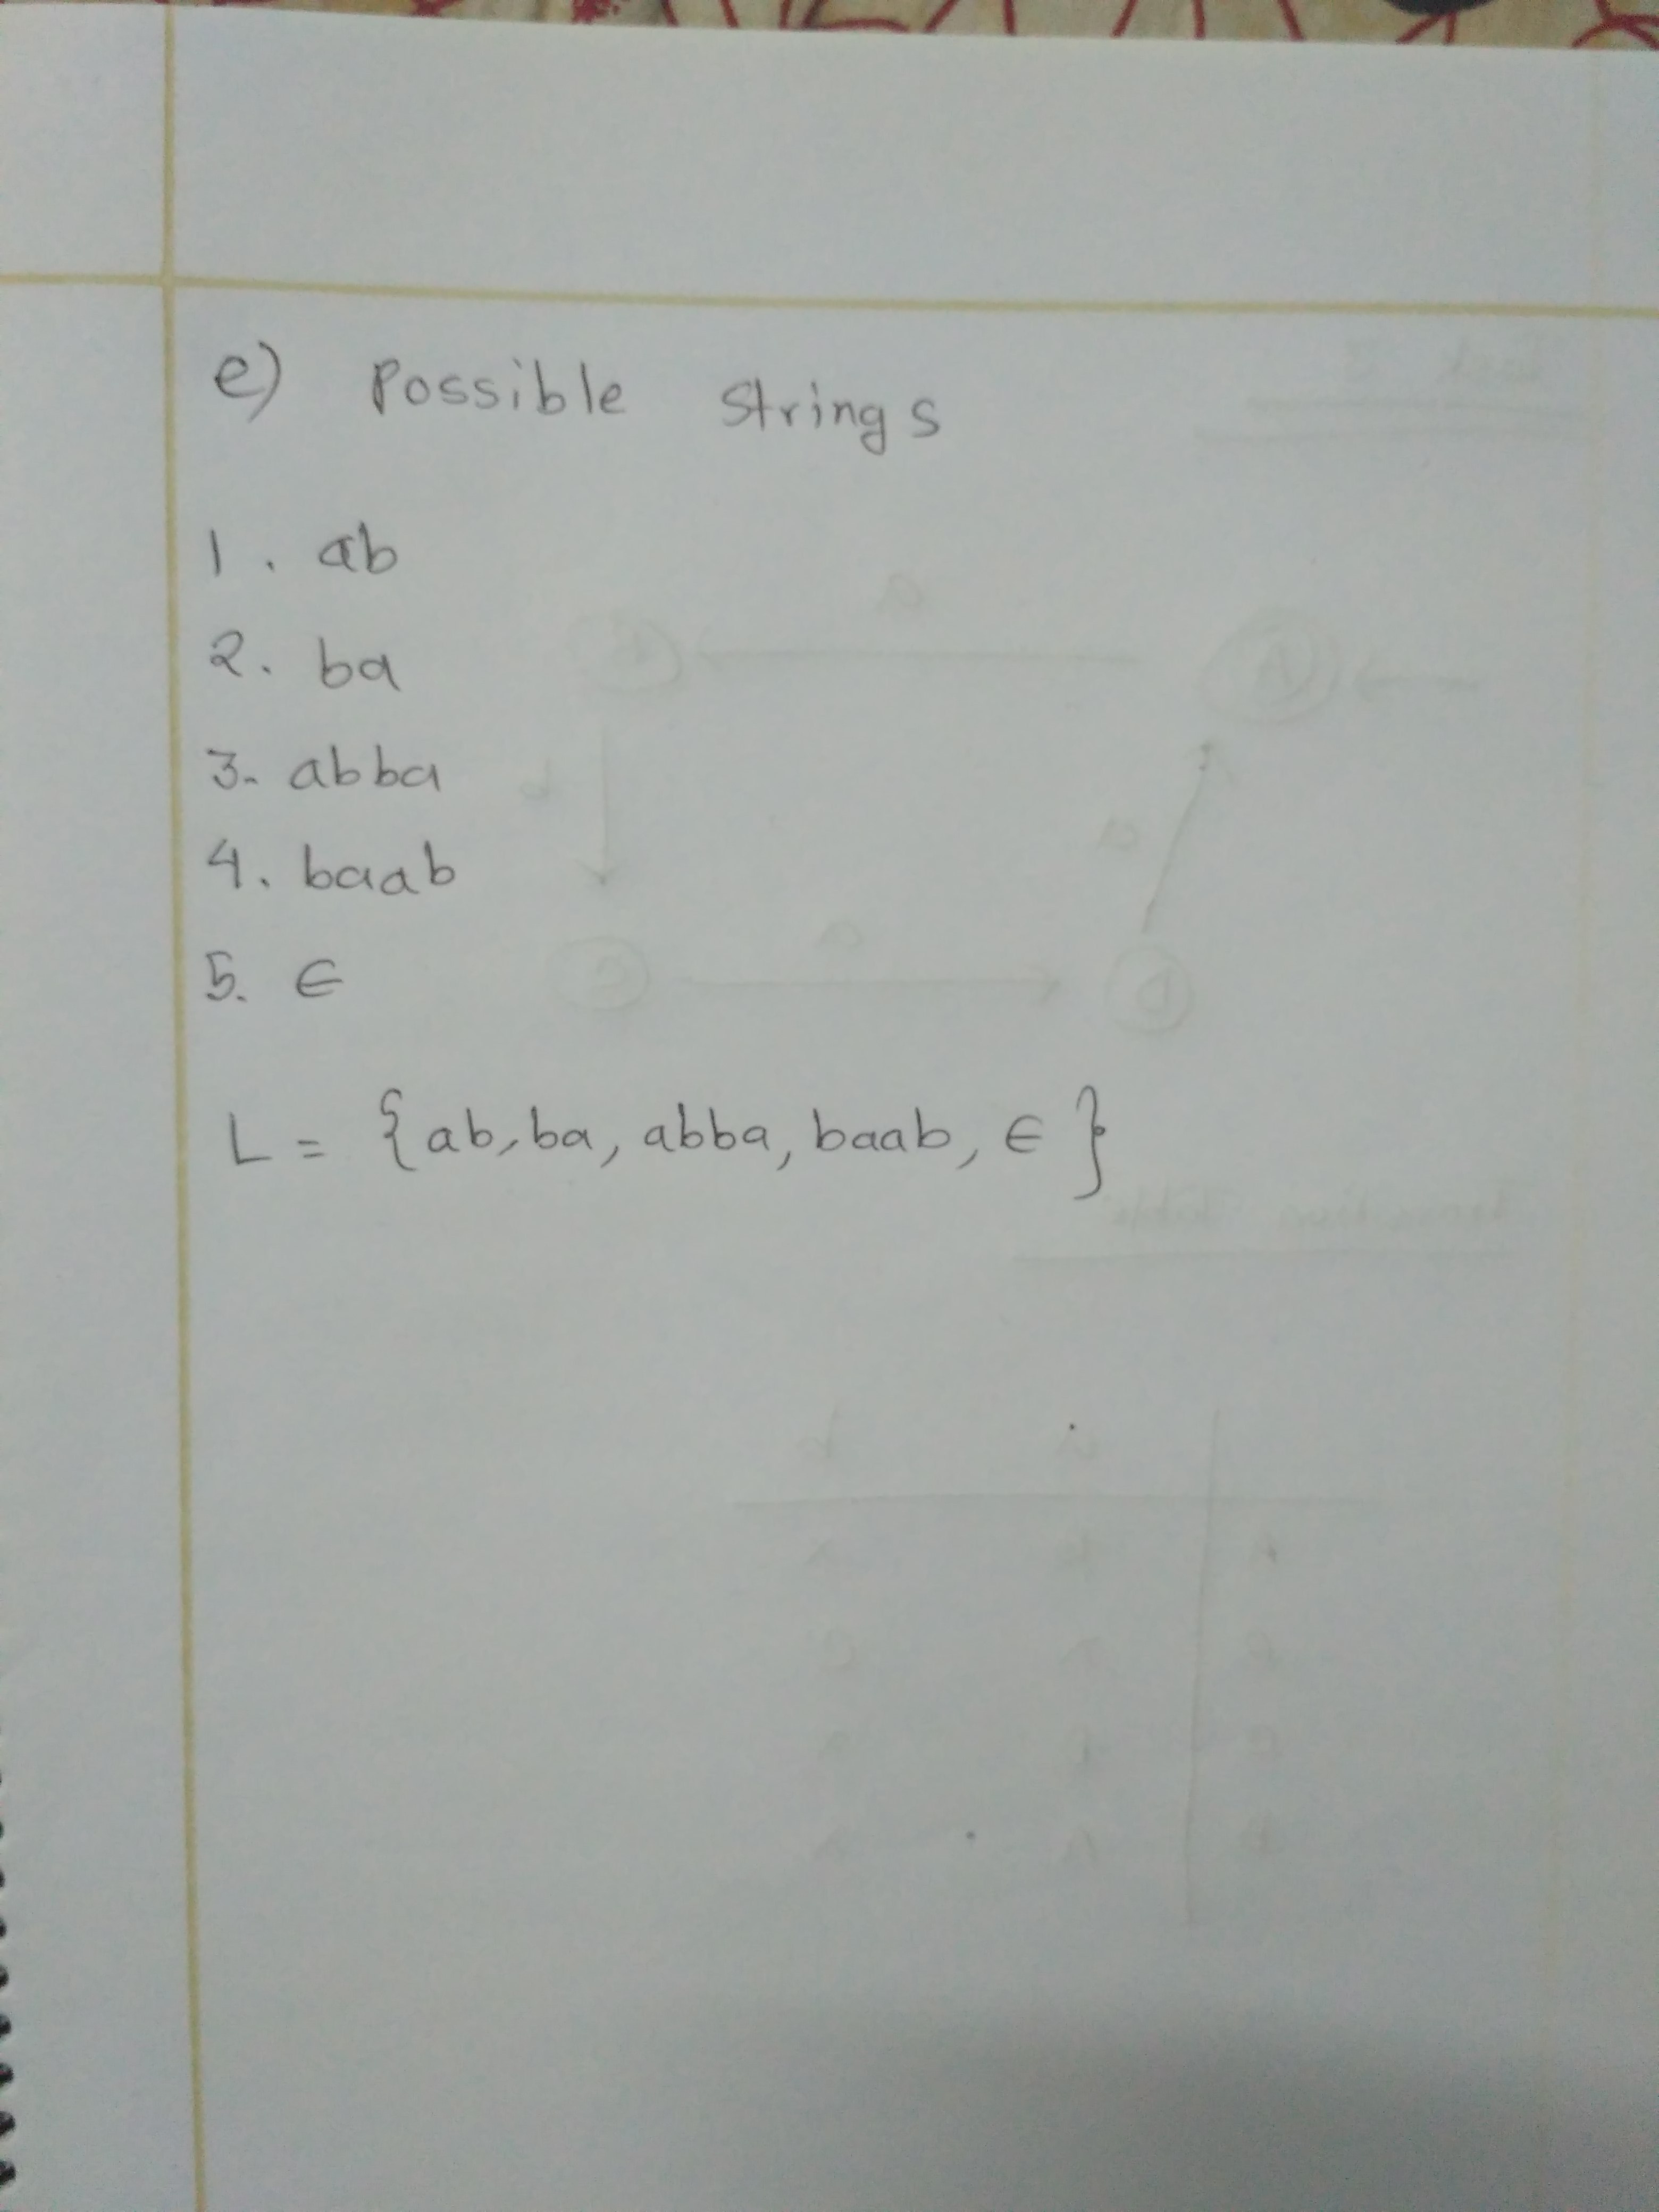 e) Possible Strings
1. ab
2. ba
3. abba
4. baab
5. ∈
L = {ab, ba, abba, baab, ∈}